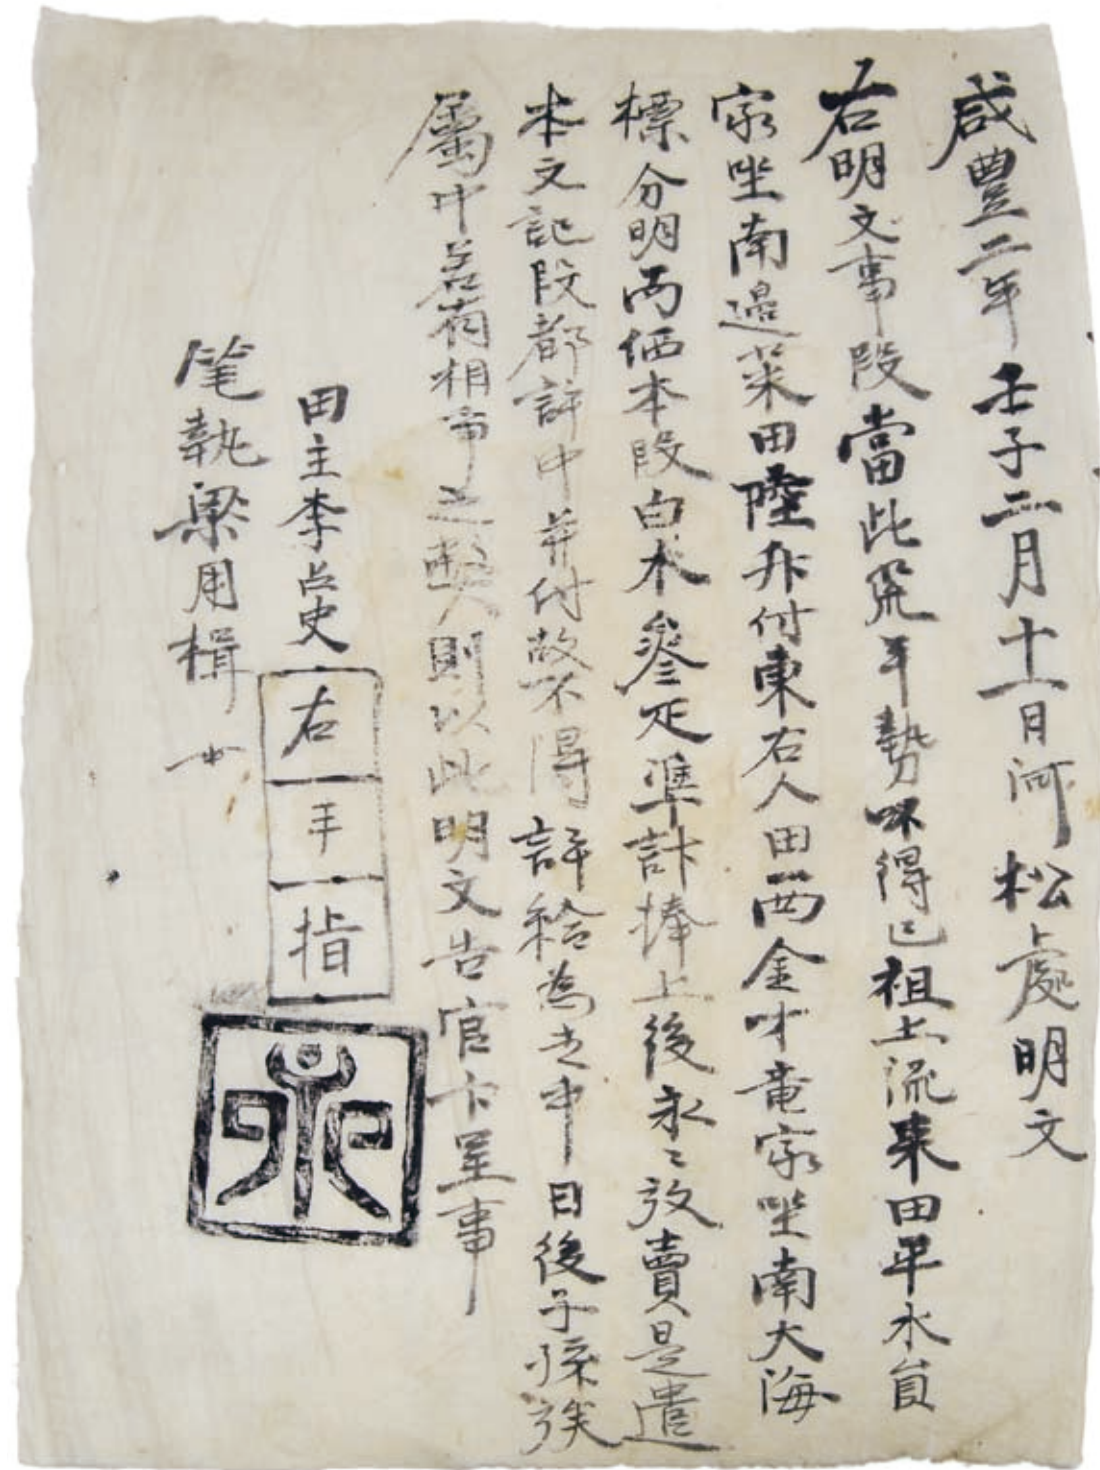 咸豊二年壬子二月十一日河松處明文
右明文事段當此荒年勢不得已祖上流来田平水員
家坐南邉菜田陸升付東右人田西金才竜家坐南大海
標分明両価本段白木参疋準計捧上後永〻放賣是遣
本文記段都許中并付故不得許給為之中日後子孫族
属中若有相争之弊則以此明文告官卞呈事
田主李占史
右
手
指
筆執梁用楫